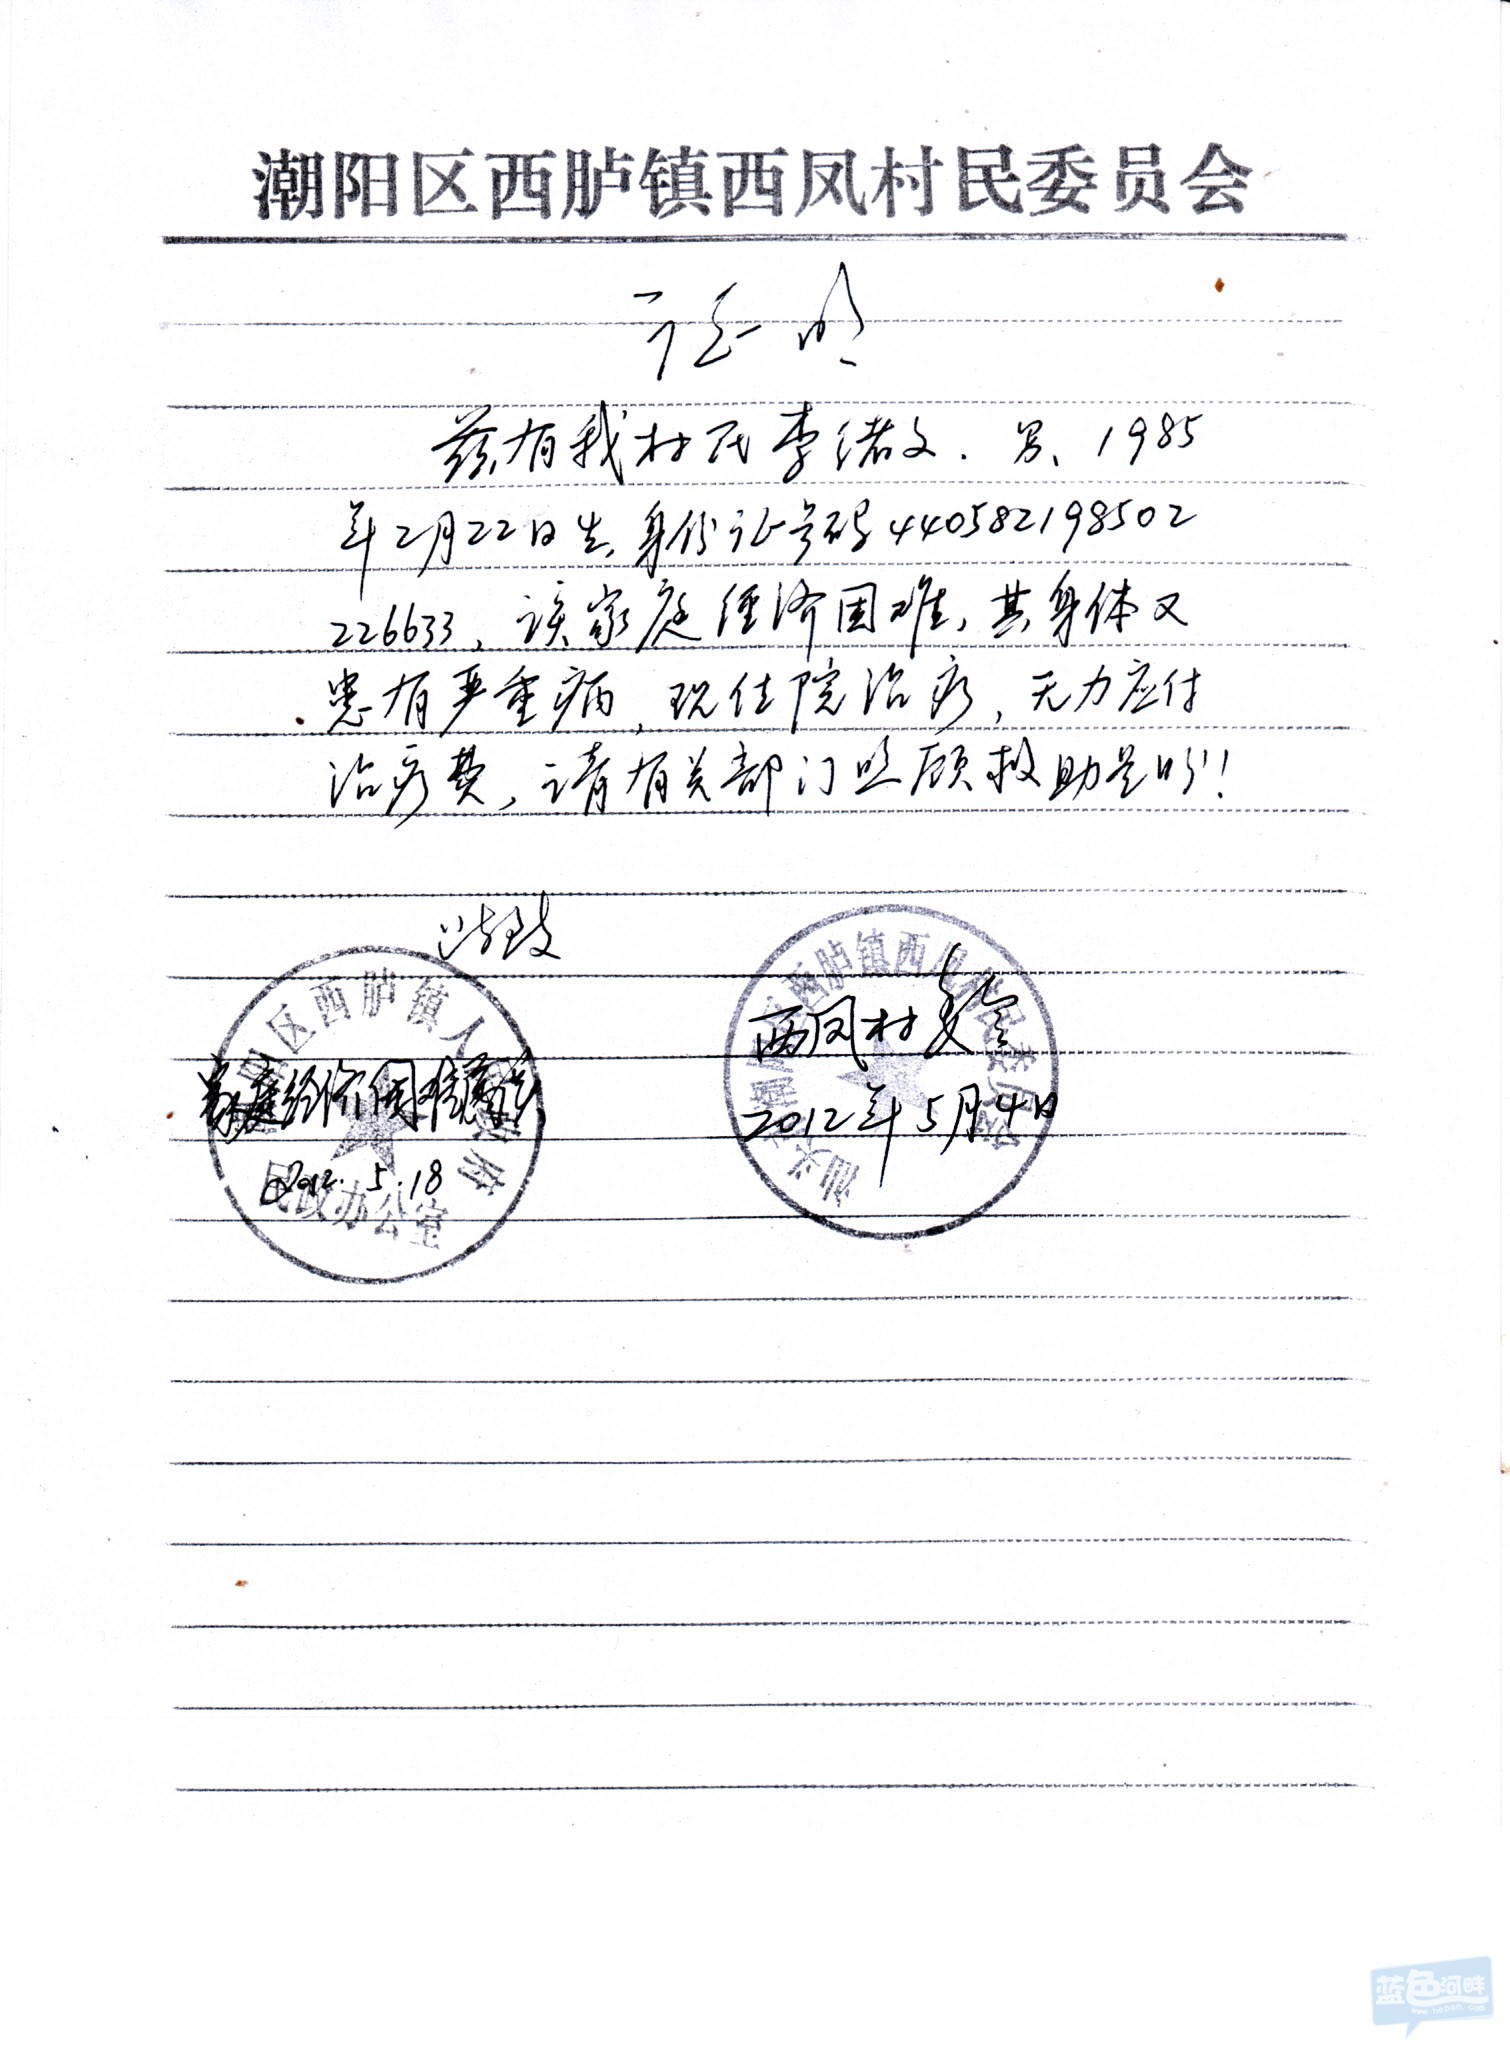 潮阳区西胪镇西凤村民委员会
证明
兹有我村民李绪文.男、1985
年2月22日生,身份证号码440582198502
226633,该家庭经济困难,其身体又
患有严重病,现住院治疗,无力应付
治疗费,请有关部门照顾救助是盼!
此致
西凤村委会
2012年5月4日
家庭经济困难属实
2012.5.18
阳区西胪镇人民政府
民政办公室
汕头市潮阳区西胪镇西凤村民委员会
蓝色河畔
www.hepan.com